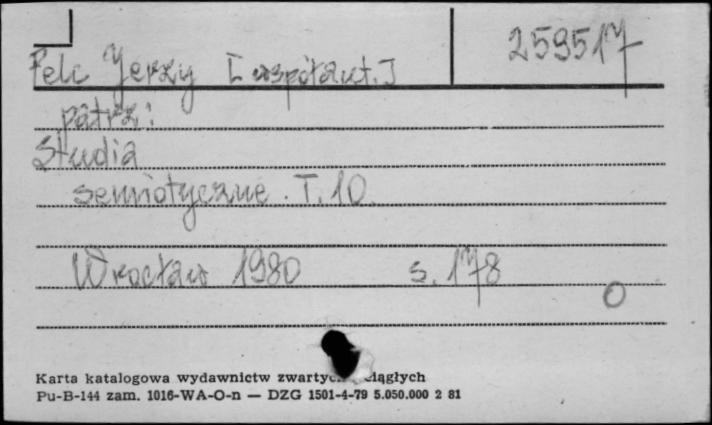 259517
Pelc Jerzy [współaut.]
patrz:
Studia
semiotyczne. T. 10
Wrocław 1980 s. 178
O
Karta katalogowa wydawnictw zwartych ciągłych
Pu-B-144 zam. 1016-WA-O-n — DZG 1501-4-79 5.050.000 2 81